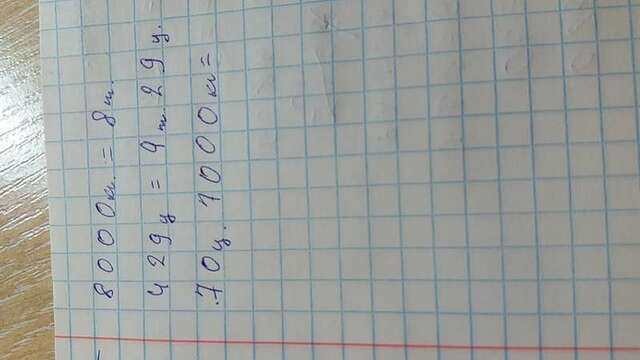 8000кг. = 8т.
429ц = 4т. 29ц.
70ц. 7000кг =